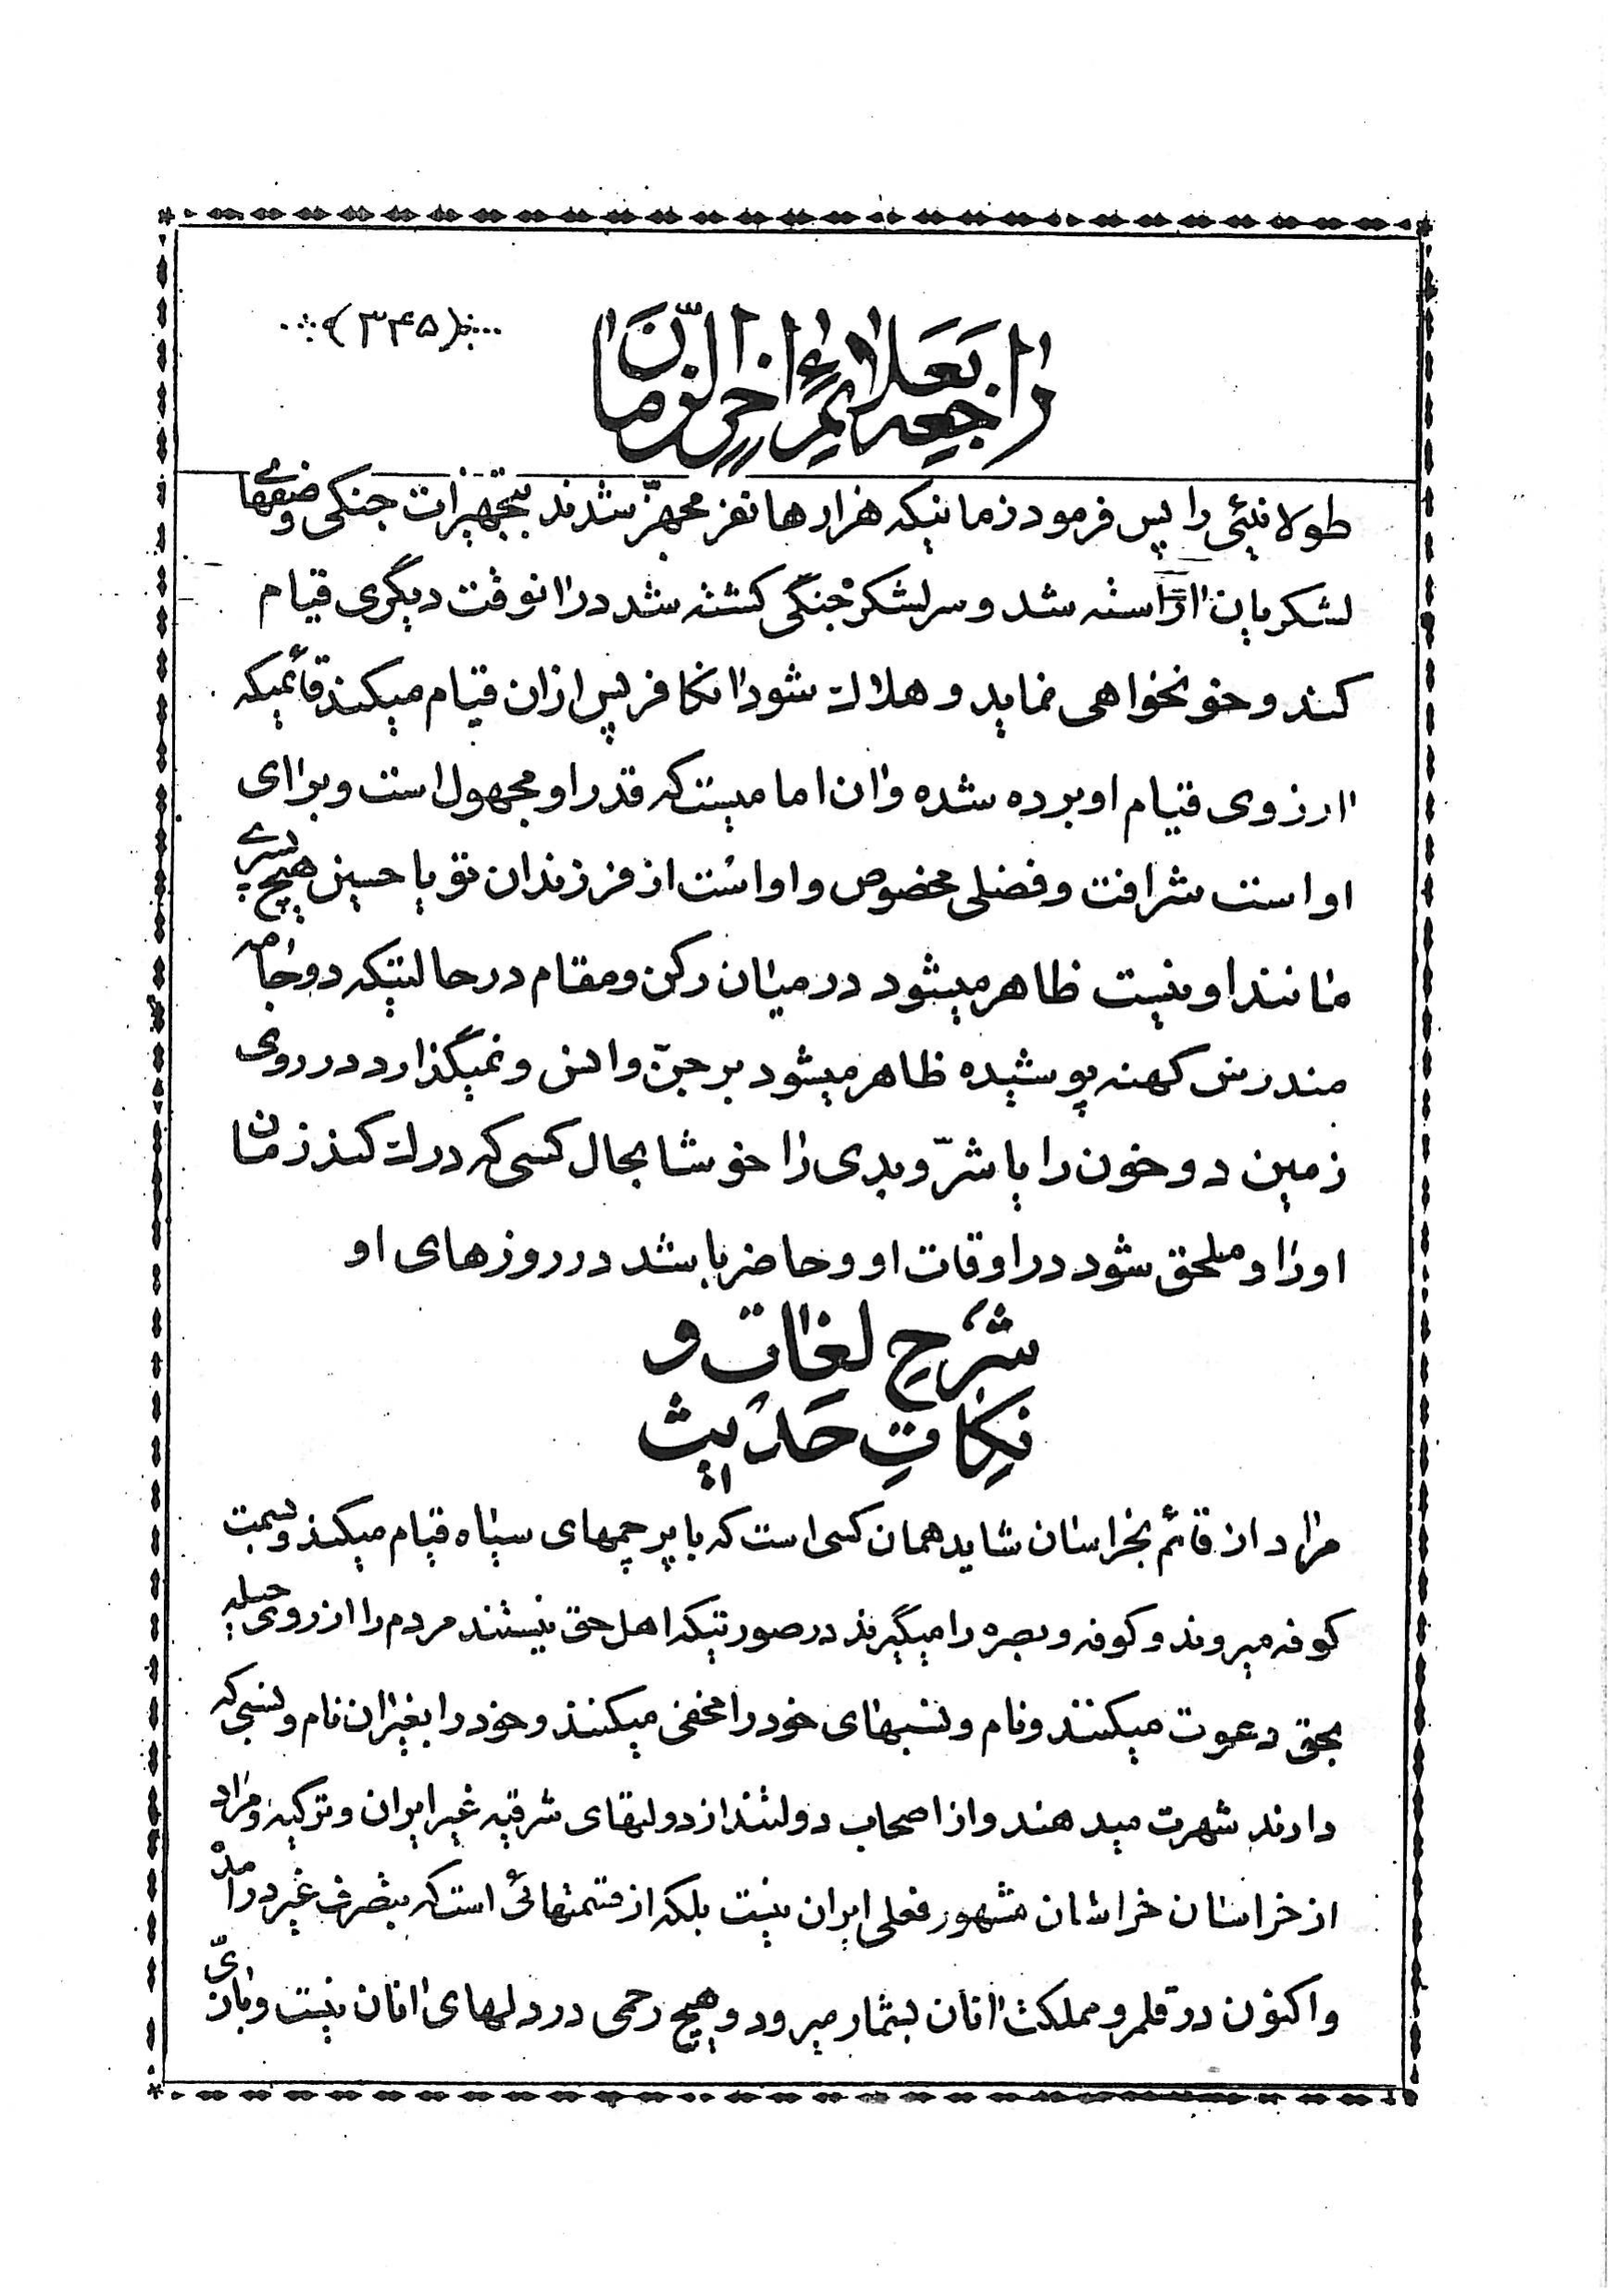 (۳۴۵)
راجعه بعلائم اخر الزمان
طولانیئی را پس فرمود زمانیکه هزارها نفر مجهّز شدند بتجهیزات جنگی و صفهای
لشکریان اراسته شد و سرلشکر جنگی کشته شد در انوقت دیگری قیام
کند و خونخواهی نماید و هلاک شود انکافر پس ازان قیام میکند قائمیکه
ارزوی قیام او برده شده وان امامیست که قدر او مجهول است و برای
او است شرافت و فضلی مخصوص و او است از فرزندان تو یا حسین هیچ پسری
مانند او نیست ظاهر میشود در میان رکن و مقام در حالتیکه دو جامه
مندرس کهنه پوشیده ظاهر میشود بر جنّ و انس و نمیگذارد در روی
زمین دو خون را یا شرّ و بدی را خوشا بحال کسی که درک کند زمان
او را و ملحق شود در اوقات او و حاضر باشد در روزهای او
شرح لغات و
نکات حدیث
مراد از قائم بخراسان شاید همان کسی است که با پرچمهای سیاه قیام میکند و بسمت
کوفه میروند و کوفه و بصره را میگیرند در صورتیکه اهل حق نیستند مردم را از روی حیله
بحق دعوت میکنند و نام و نسبهای خود را مخفی میکنند و خود را بغیر ان نام و نسبی که
دارند شهرت میدهند و از اصحاب دولتند از دولتهای شرقیه غیر ایران و ترکیه و مراد
از خراسان خراسان مشهور فعلی ایران نیست بلکه از قسمتهائی است که بتصرف غیر درامده
و اکنون در قلمرو مملکت انان بشمار میرود و هیچ رحمی در دلهای انان نیست و بازیّ